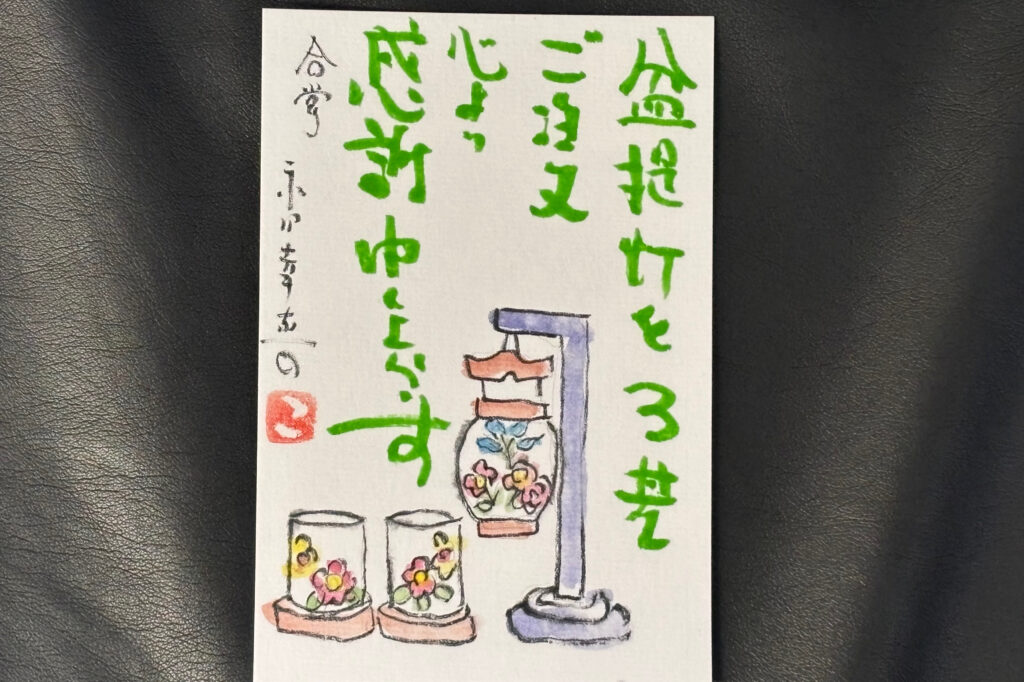 盆提灯を3基
ご注文
心より
感謝申し上げます
合掌
こ